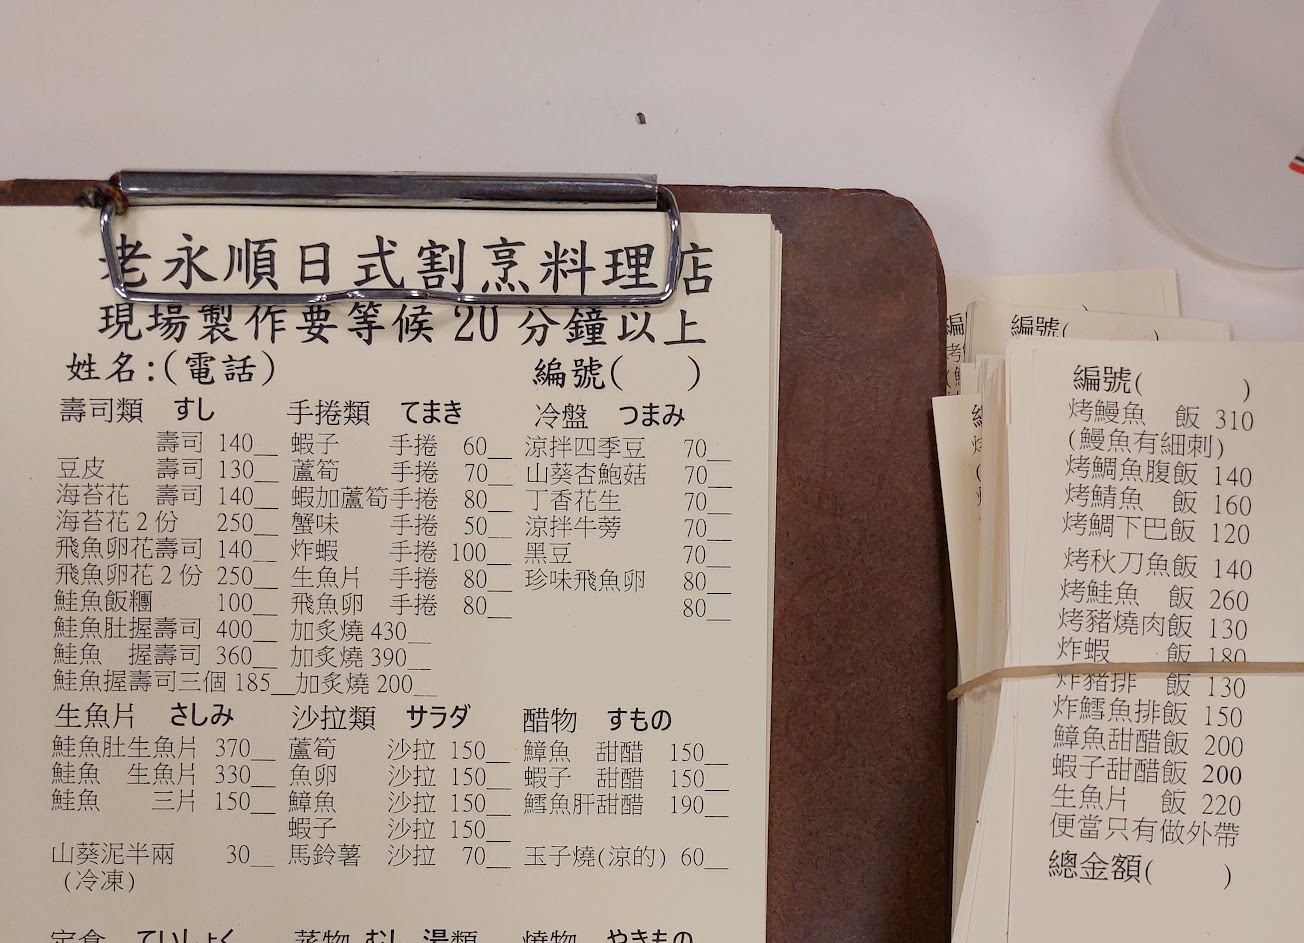 老永順日式割烹料理店
現場製作要等候 20 分鐘以上
姓名:(電話) 編號( )
壽司類 すし
壽司 140__
豆皮 壽司 130__
海苔花 壽司 140__
海苔花 2 份 250__
飛魚卵花壽司 140__
飛魚卵花 2 份 250__
鮭魚飯糰 100__
鮭魚肚握壽司 400__ 加炙燒 430__
鮭魚 握壽司 360__ 加炙燒 390__
鮭魚握壽司三個 185__ 加炙燒 200__
手捲類 てまき
蝦子 手捲 60__
蘆筍 手捲 70__
蝦加蘆筍手捲 80__
蟹味 手捲 50__
炸蝦 手捲 100__
生魚片 手捲 80__
飛魚卵 手捲 80__
冷盤 つまみ
涼拌四季豆 70__
山葵杏鮑菇 70__
丁香花生 70__
涼拌牛蒡 70__
黑豆 70__
珍味飛魚卵 80__
80__
生魚片 さしみ
鮭魚肚生魚片 370__
鮭魚 生魚片 330__
鮭魚 三片 150__
山葵泥半兩 30__
(冷凍)
沙拉類 サラダ
蘆筍 沙拉 150__
魚卵 沙拉 150__
鱆魚 沙拉 150__
蝦子 沙拉 150__
馬鈴薯 沙拉 70__
醋物 すもの
鱆魚 甜醋 150__
蝦子 甜醋 150__
鱈魚肝甜醋 190__
玉子燒(涼的) 60__
定食 ていしょく 蒸物 むし 湯類 燒物 やきもの
編號(
編號( )
烤鰻魚 飯 310
(鰻魚有細刺)
烤鯛魚腹飯 140
烤鯖魚 飯 160
烤鯛下巴飯 120
烤秋刀魚飯 140
烤鮭魚 飯 260
烤豬燒肉飯 130
炸蝦 飯 180
炸豬排 飯 130
炸鱈魚排飯 150
鱆魚甜醋飯 200
蝦子甜醋飯 200
生魚片 飯 220
便當只有做外帶
總金額( )